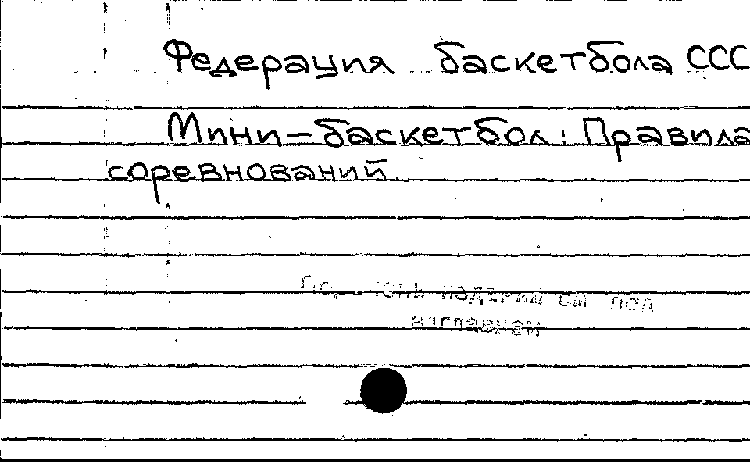 Федерация баскетбола ССС
Мини-баскетбол: Правила
соревнований.
изданий см под
заглавием